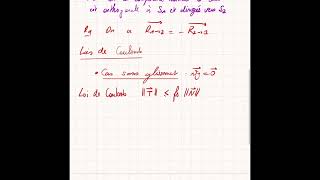 est orthogonale à S₁ et dirigée vers S₂
Rq On a R₁→₂ = - R₂→₁
Lois de Coulomb
• Cas sans glissement : = 0
Loi de Coulomb ||T|| ≤ fs ||N||